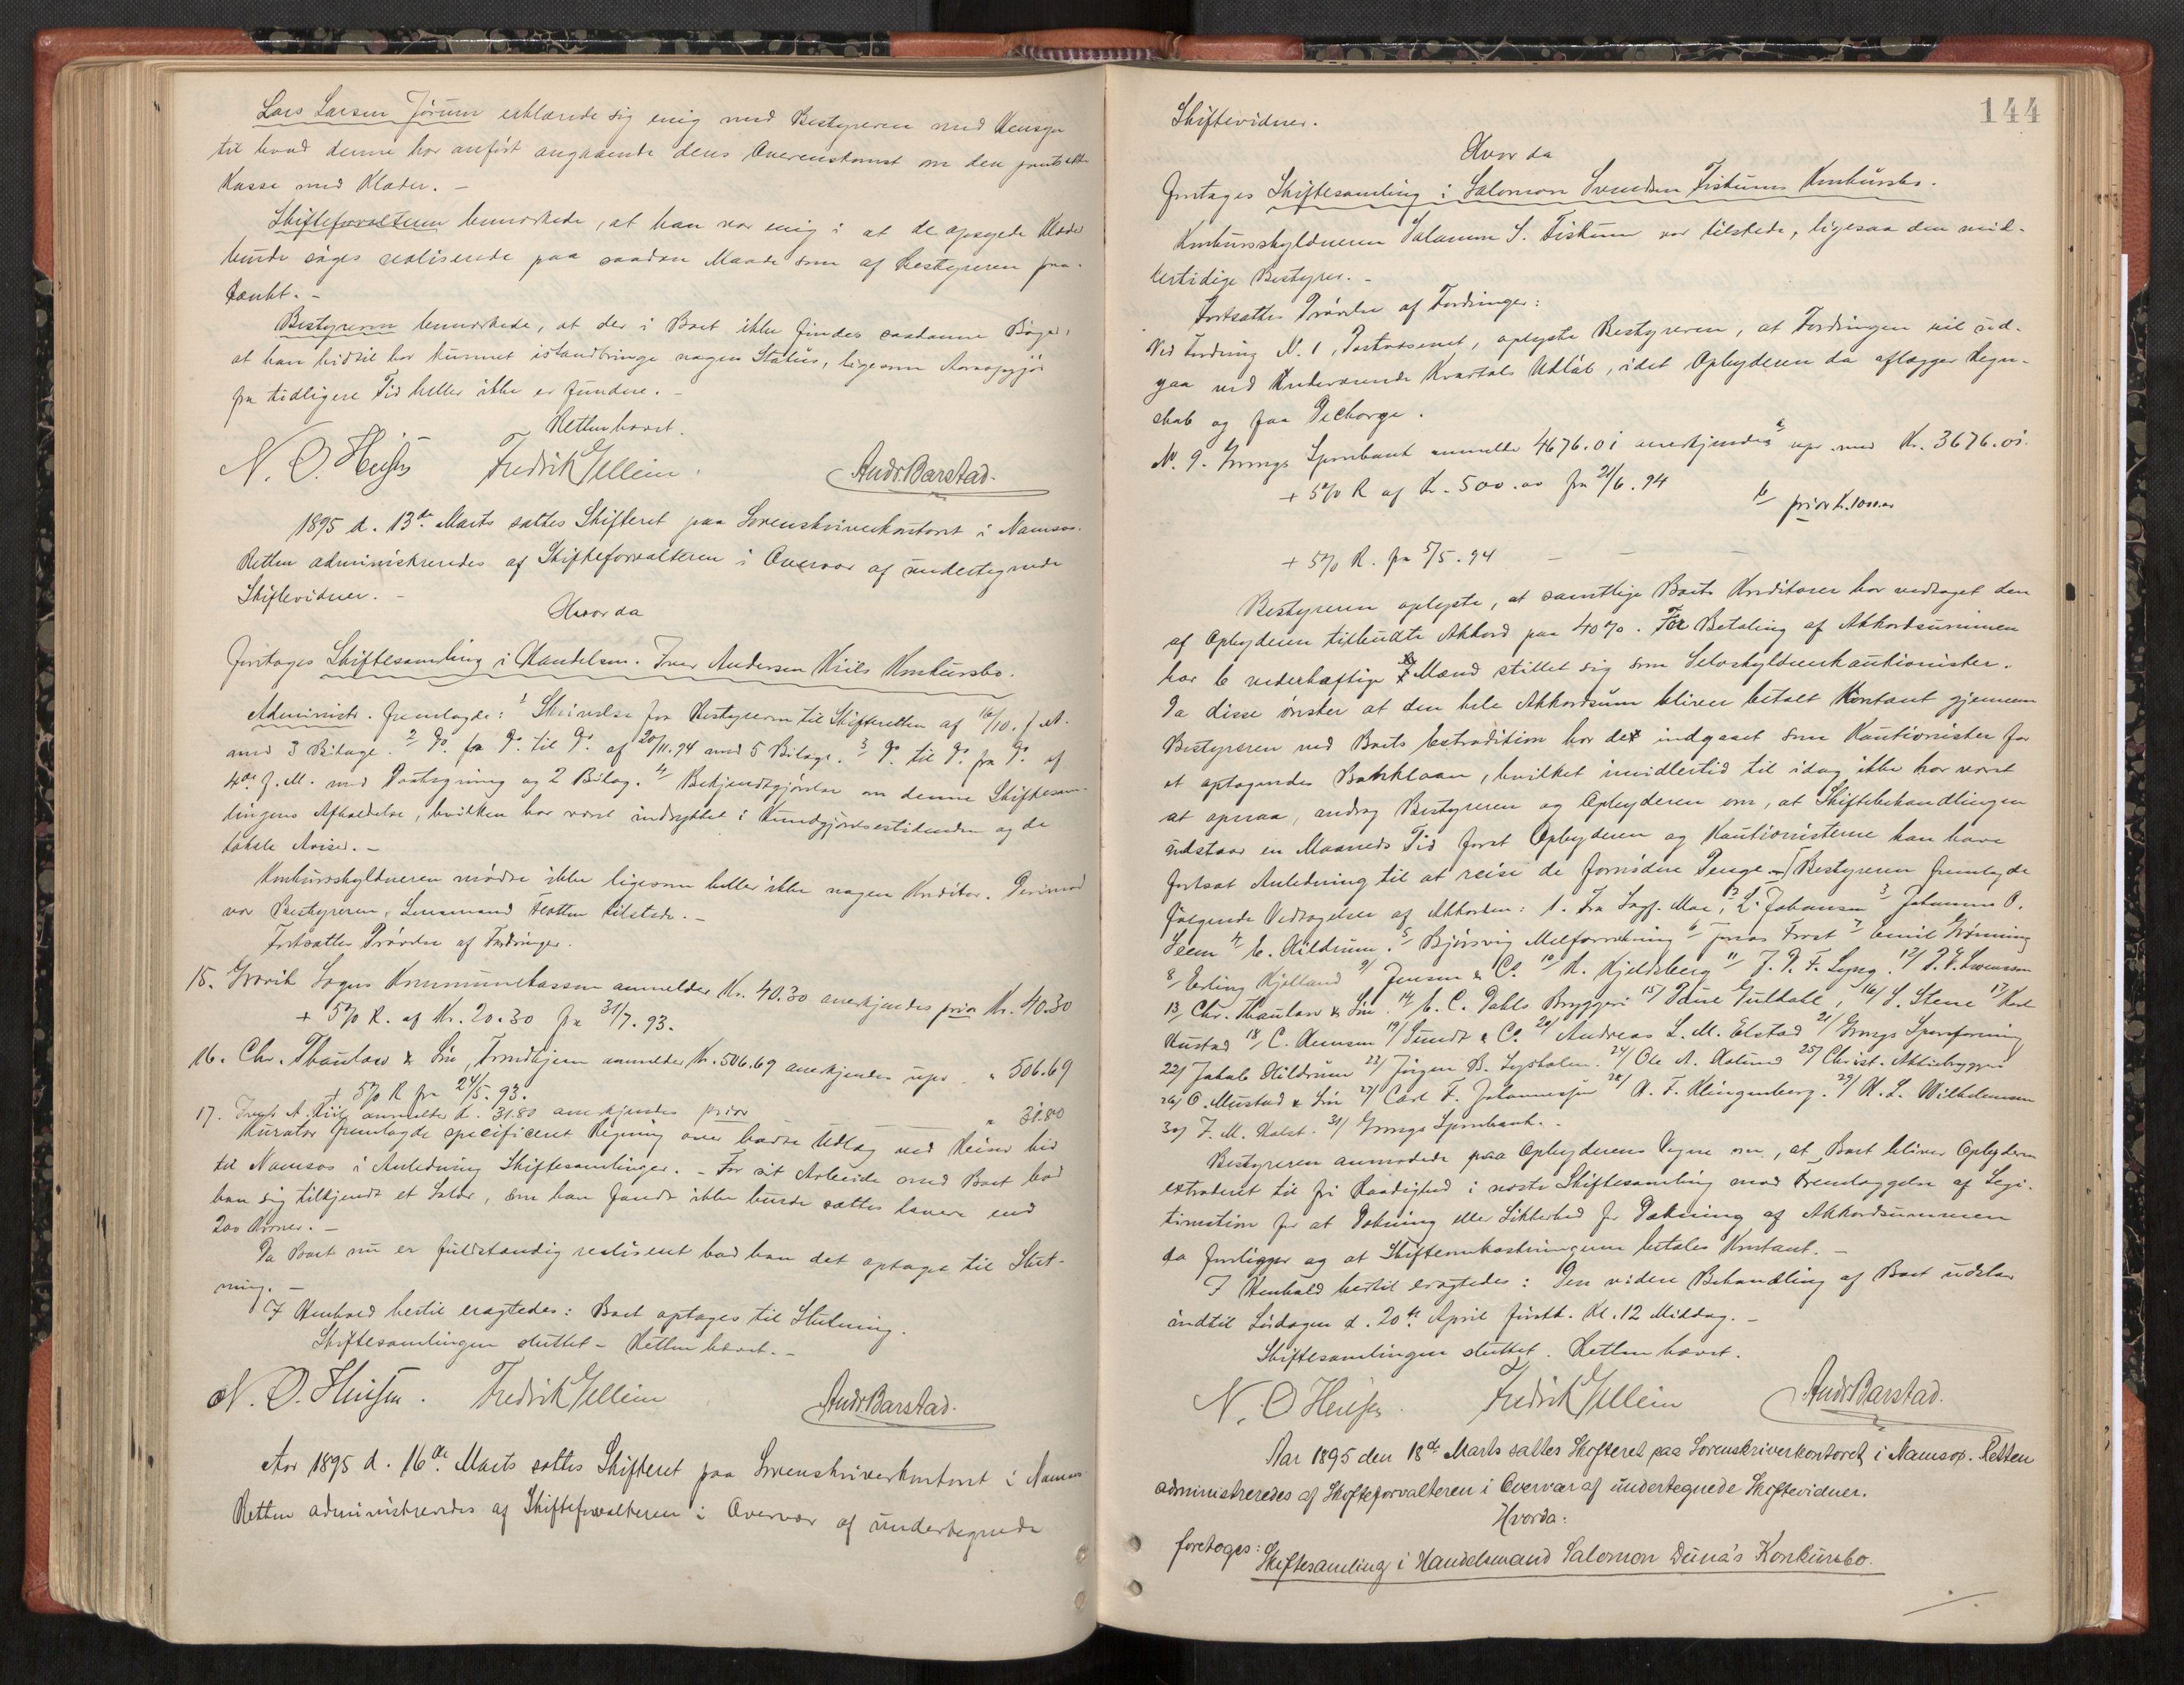 Lars Larsen Jørum erklærede sig enig med Bestyreren med Hensyn
til hvad denne har anført angaaende dens Overenskomst om den pantsatte
Kasse med Klæder. -
Skifteforvalteren bemærkede, at han var enig i at de opsagede Klæder
burde søges realiserede paa saadan Maade som af Bestyreren paa-
tænkt. -
Bestyreren bemærkede, at der i Boet ikke findes saadanne Bøger,
at han hidtil har kunnet istandbringe nogen Status, ligesom Aarsopgjør
fra tidligere Tid heller ikke er fundne. -
Retten hævet.
N. O. Fredrik Gellein. Andr. Barstad.
1895 d. 13de Marts sattes Skifteret paa Sorenskriverkontoret i Namsos.
Retten administreredes af Skifteforvalteren i Overvær af undertegnede
Skiftevidner. -
Hvor da
foretoges Skiftesamling i Handelsm. Iver Andersen Kiils Konkursbo.
Administr. fremlagde: 1 Skrivelse fra Bestyreren til Skifteretten af 16/10. f. A.
med 3 Bilage. 2 Do. fra Do. til Do. af 20/11.94 med 5 Bilage. 3 Do. til Do. fra Do. af
4de d. M. med Paategning og 2 Bilag. 4/ Bekjendtgjørelse om denne Skiftesam-
lingens Afholdelse, hvilken har været indrykket i Kundgjørelsestidenden og de
lokale Aviser. -
Konkursskyldneren mødte ikke ligesom heller ikke nogen Kreditor. Derimod
var Bestyreren, Lensmand tilstede. -
Fortsattes Prøvelse af Fordringer.
15. Grovik Sogns Kommunekasse anmelder Kr. 40.30 anerkjendes prior Kr. 40.30
+ 5% R. af Kr. 20.30 fra 31/7. 93.
16. Chr. Thaulow & Søn, Trondhjem anmelder Kr. 506.69 anerkjendes upr. - " 506.69
+ 5% R fra 24/5. 93.
17. A. Kiil anmelder K. 31.80 anerkjendes prior " 31.80
Kurator fremlagde specificeret Regning over havte Udlæg ved Reiser hid
til Namsos i Anledning Skiftesamlinger. - For sit Arbeide med Boet bad
han sig tilkjendt et Salær, som han fandt ikke burde sættes lavere end
200 Kroner. -
Da Boet nu er fuldstændig realiseret bad han det optaget til Slut-
ning. -
I Henhold hertil eragtedes: Boet optages til Slutning.
Skiftesamlingen sluttet - Retten hævet. -
N. O. Fredrik Gellein Andr. Barstad.
Aar 1895 d. 16de Marts sattes Skifteret paa Sorenskriverkontoret i Namsos
Retten administreredes af Skifteforvalteren i Overvær af undertegnede
144
Skiftevidner.
Hvor da
foretoges Skiftesamling i Salomon Svendsen Fiskums Konkursbo.
Konkursskyldneren Salamon S. Fiskum var tilstede, ligesaa den mid-
lertidige Bestyrer. -
Fortsattes Prøvelse af Fordringer:
Ved Fordring N. 1, Postvæsenet, oplyste Bestyreren, at Fordringen vil ud-
gaa ved Indeværende Kvartals Udløb, idet Opbyderen da aflægger Regn-
skab og faar Decharge.
No. 9. Grongs Sparebank anmeldte 4676.01 anerkjendes a upr. med Kr. 3676.01.
+ 5% R af Kr. 500.00 fra 21/6. 94
b prior Kr. 1000.00
+ 5% R. fra 5/5. 94 - - -
Bestyreren oplyste, at samtlige Boets Kreditorer har vedtaget den
af Opbyderen tilbudte Akkord paa 40%. For Betaling af Akkordsummen
har 6 vederhæftige Mænd stillet sig som Selvskyldnerkautionister.
Da disse ønsker at den hele Akkordsum bliver betalt Kontant gjennem
Bestyreren ved Boets Extradition har de indgaaet som Kautionister for
et optagendes Banklaan, hvilket imidlertid til idag ikke har været
at opnaa, androg Bestyreren og Opbyderen om, at Skiftebehandlingen
udstaar en Maaneds Tid forat Opbyderen og Kautionisterne kan have
fortsat Anledning til at reise de fornødne Penge - Bestyreren fremlagde
følgende Vedtagelser af Akkorden: 1. Fra Sagf. Moe, 2 L. Johansen 3 Johannes O.
Seem 4 E. Hildrum. 5 Bjørsvig Melforretning 6 Jonas Frost 7 Emil Grønning
8/ Erling Kjølland 9/ Jensen & Co. 10/ H. Kjeldsberg 11/ J. N. F. Lyseg. 12/ P. E. Swensson
13/ Chr. Thaulow & Søn. 14/ E. C. Dahls Bryggeri 15/ Paul Guldahl, 16/ S. Stene 17/ Karl
Hustad 18/ C. Hansen 19/ Sundt & Co. 20/ Andreas L. M. Elstad 21/ Grongs Sparforening
22/ Jakob Hildrum 23/ Jørgen B. Lysholm. 24/ Ole A. Kolund 25/ Christ. Aktiebryggeri
26/ O. Mustad & Søn 27/ Carl F. Johannesen 28/ H. F. Klingenberg. 29/ H. L. Wilhelmsen
30/ J. M. Holst. 31/ Grongs Sparebank. -
Bestyreren anmodede paa Opbyderens Vegne om, at Boet bliver Opbyderen
extraderet til fri Raadighed i næste Skiftesamling mod Fremlæggelse af Legi-
timation for at Dækning eller Sikkerhed for Dækning af Akkordsummen
da foreligger og at Skifteomkostningerne betales Kontant. -
I Henhold hertil eragtedes: Den videre Behandling af Boet udstaar
indtil Lørdagen d. 20de April førstk. Kl. 12 Middag. -
Skiftesamlingen sluttet. Retten hævet.
N. O Fredrik Gellein Andr Barstad.
Aar 1895 den 18de Marts sattes Skifteret paa Sorenskriverkontoret i Namsos. Retten
administreredes af Skifteforvalteren i Overvær af undertegnede Skiftevidner.
Hvorda:
foretoges:
Skiftesamling i Handelsmand Salomon Duna's Konkursbo.